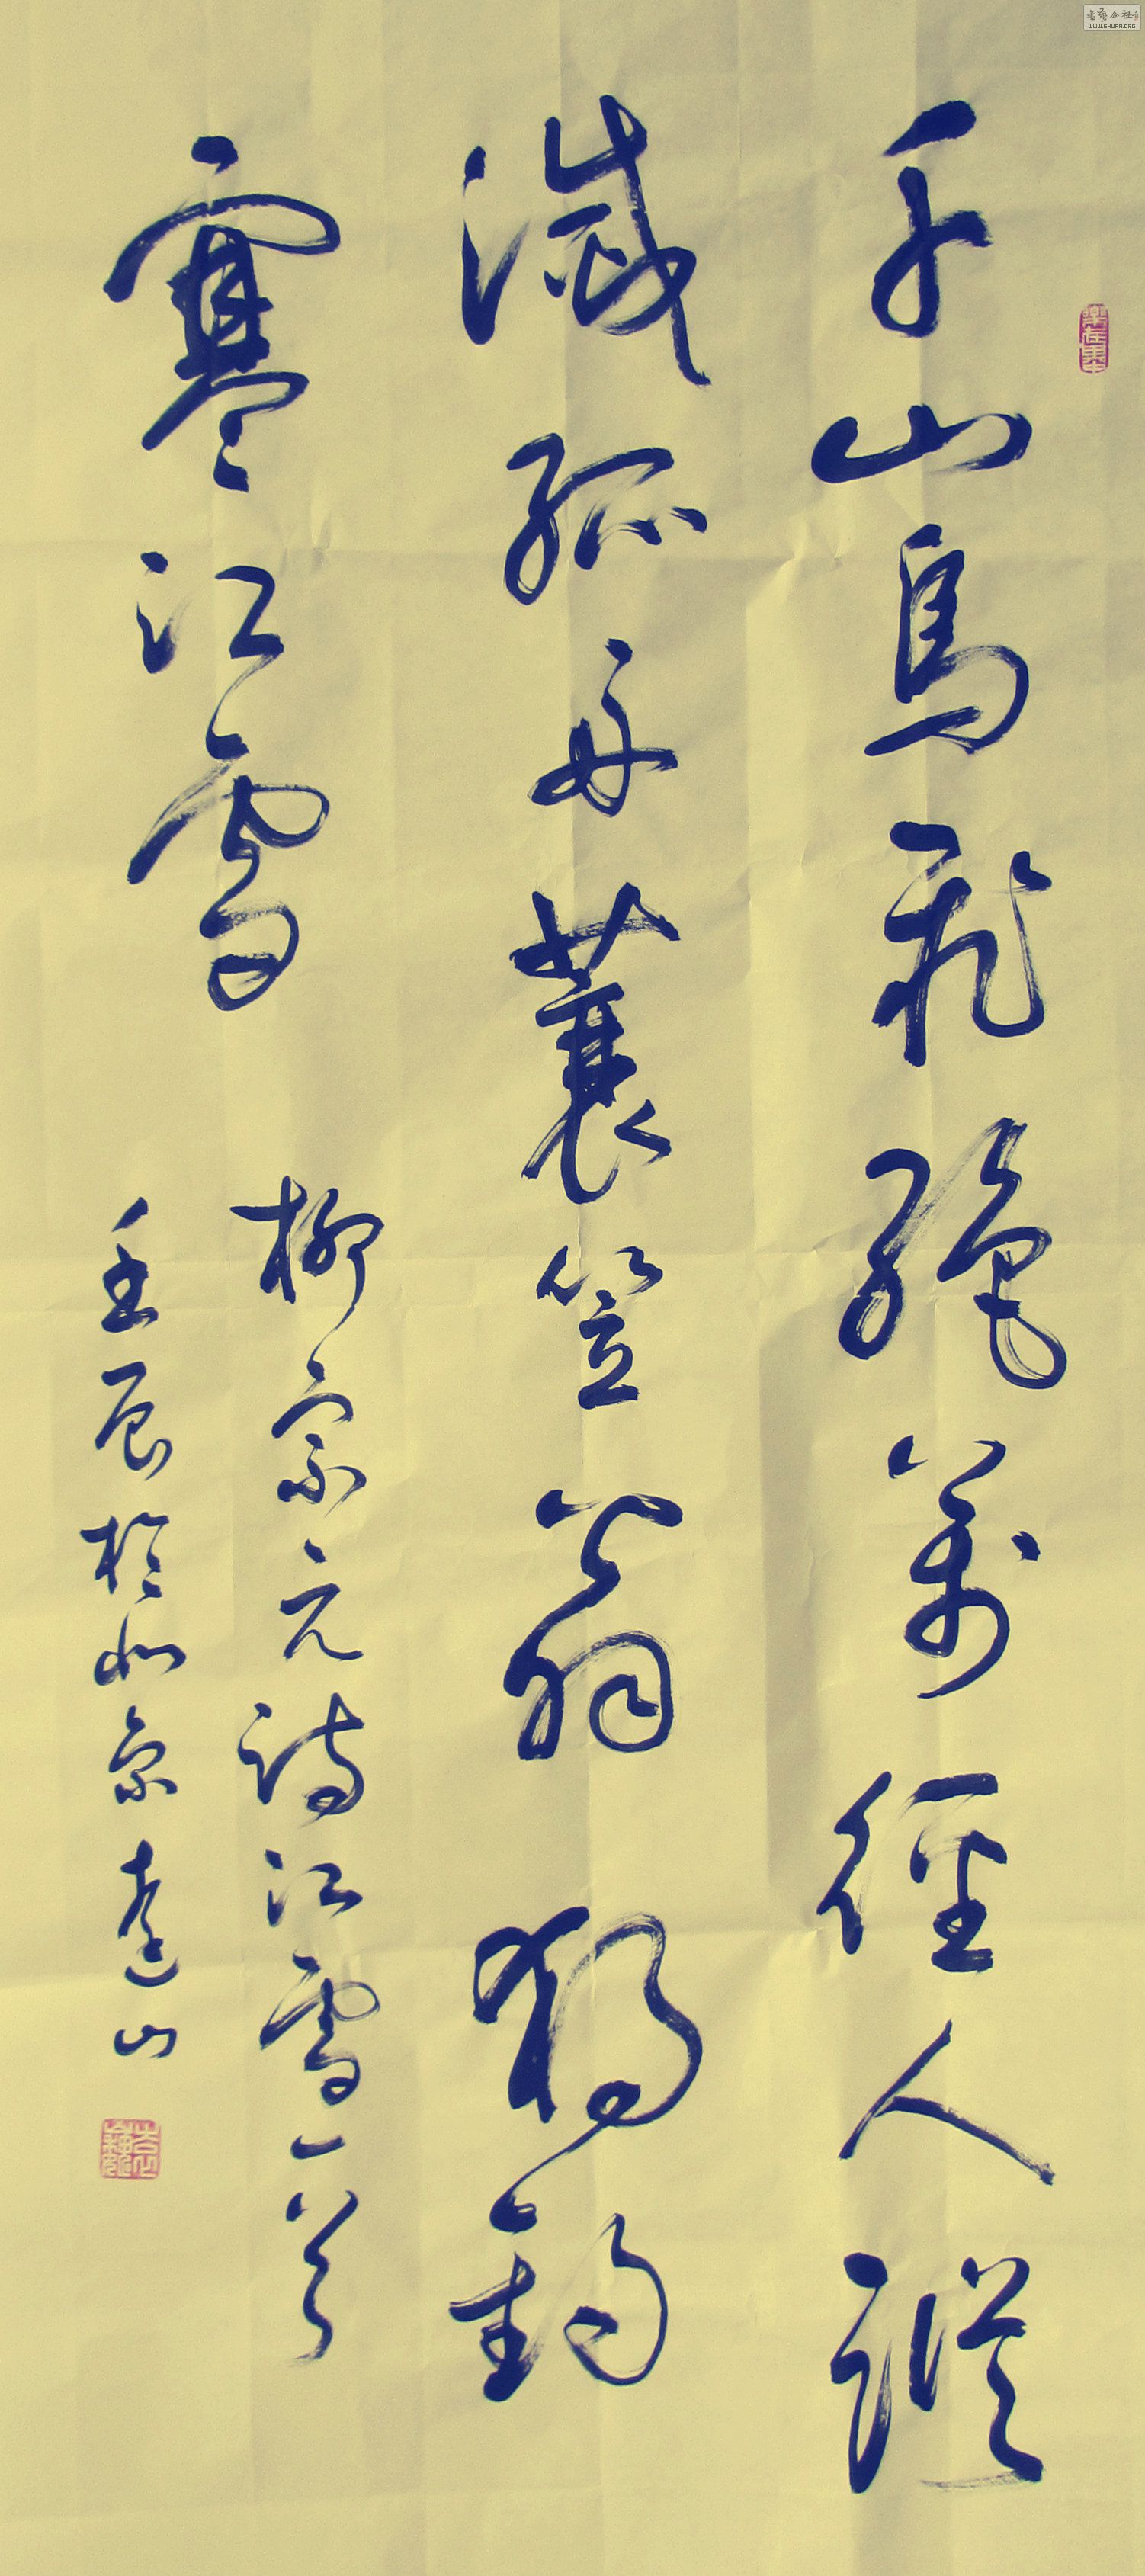 千山鳥飛絕萬徑人蹤
滅孤舟蓑笠翁獨釣
寒江雪
柳宗元詩江雪一首
壬辰於北京遠山
WWW.SHUFA.ORG